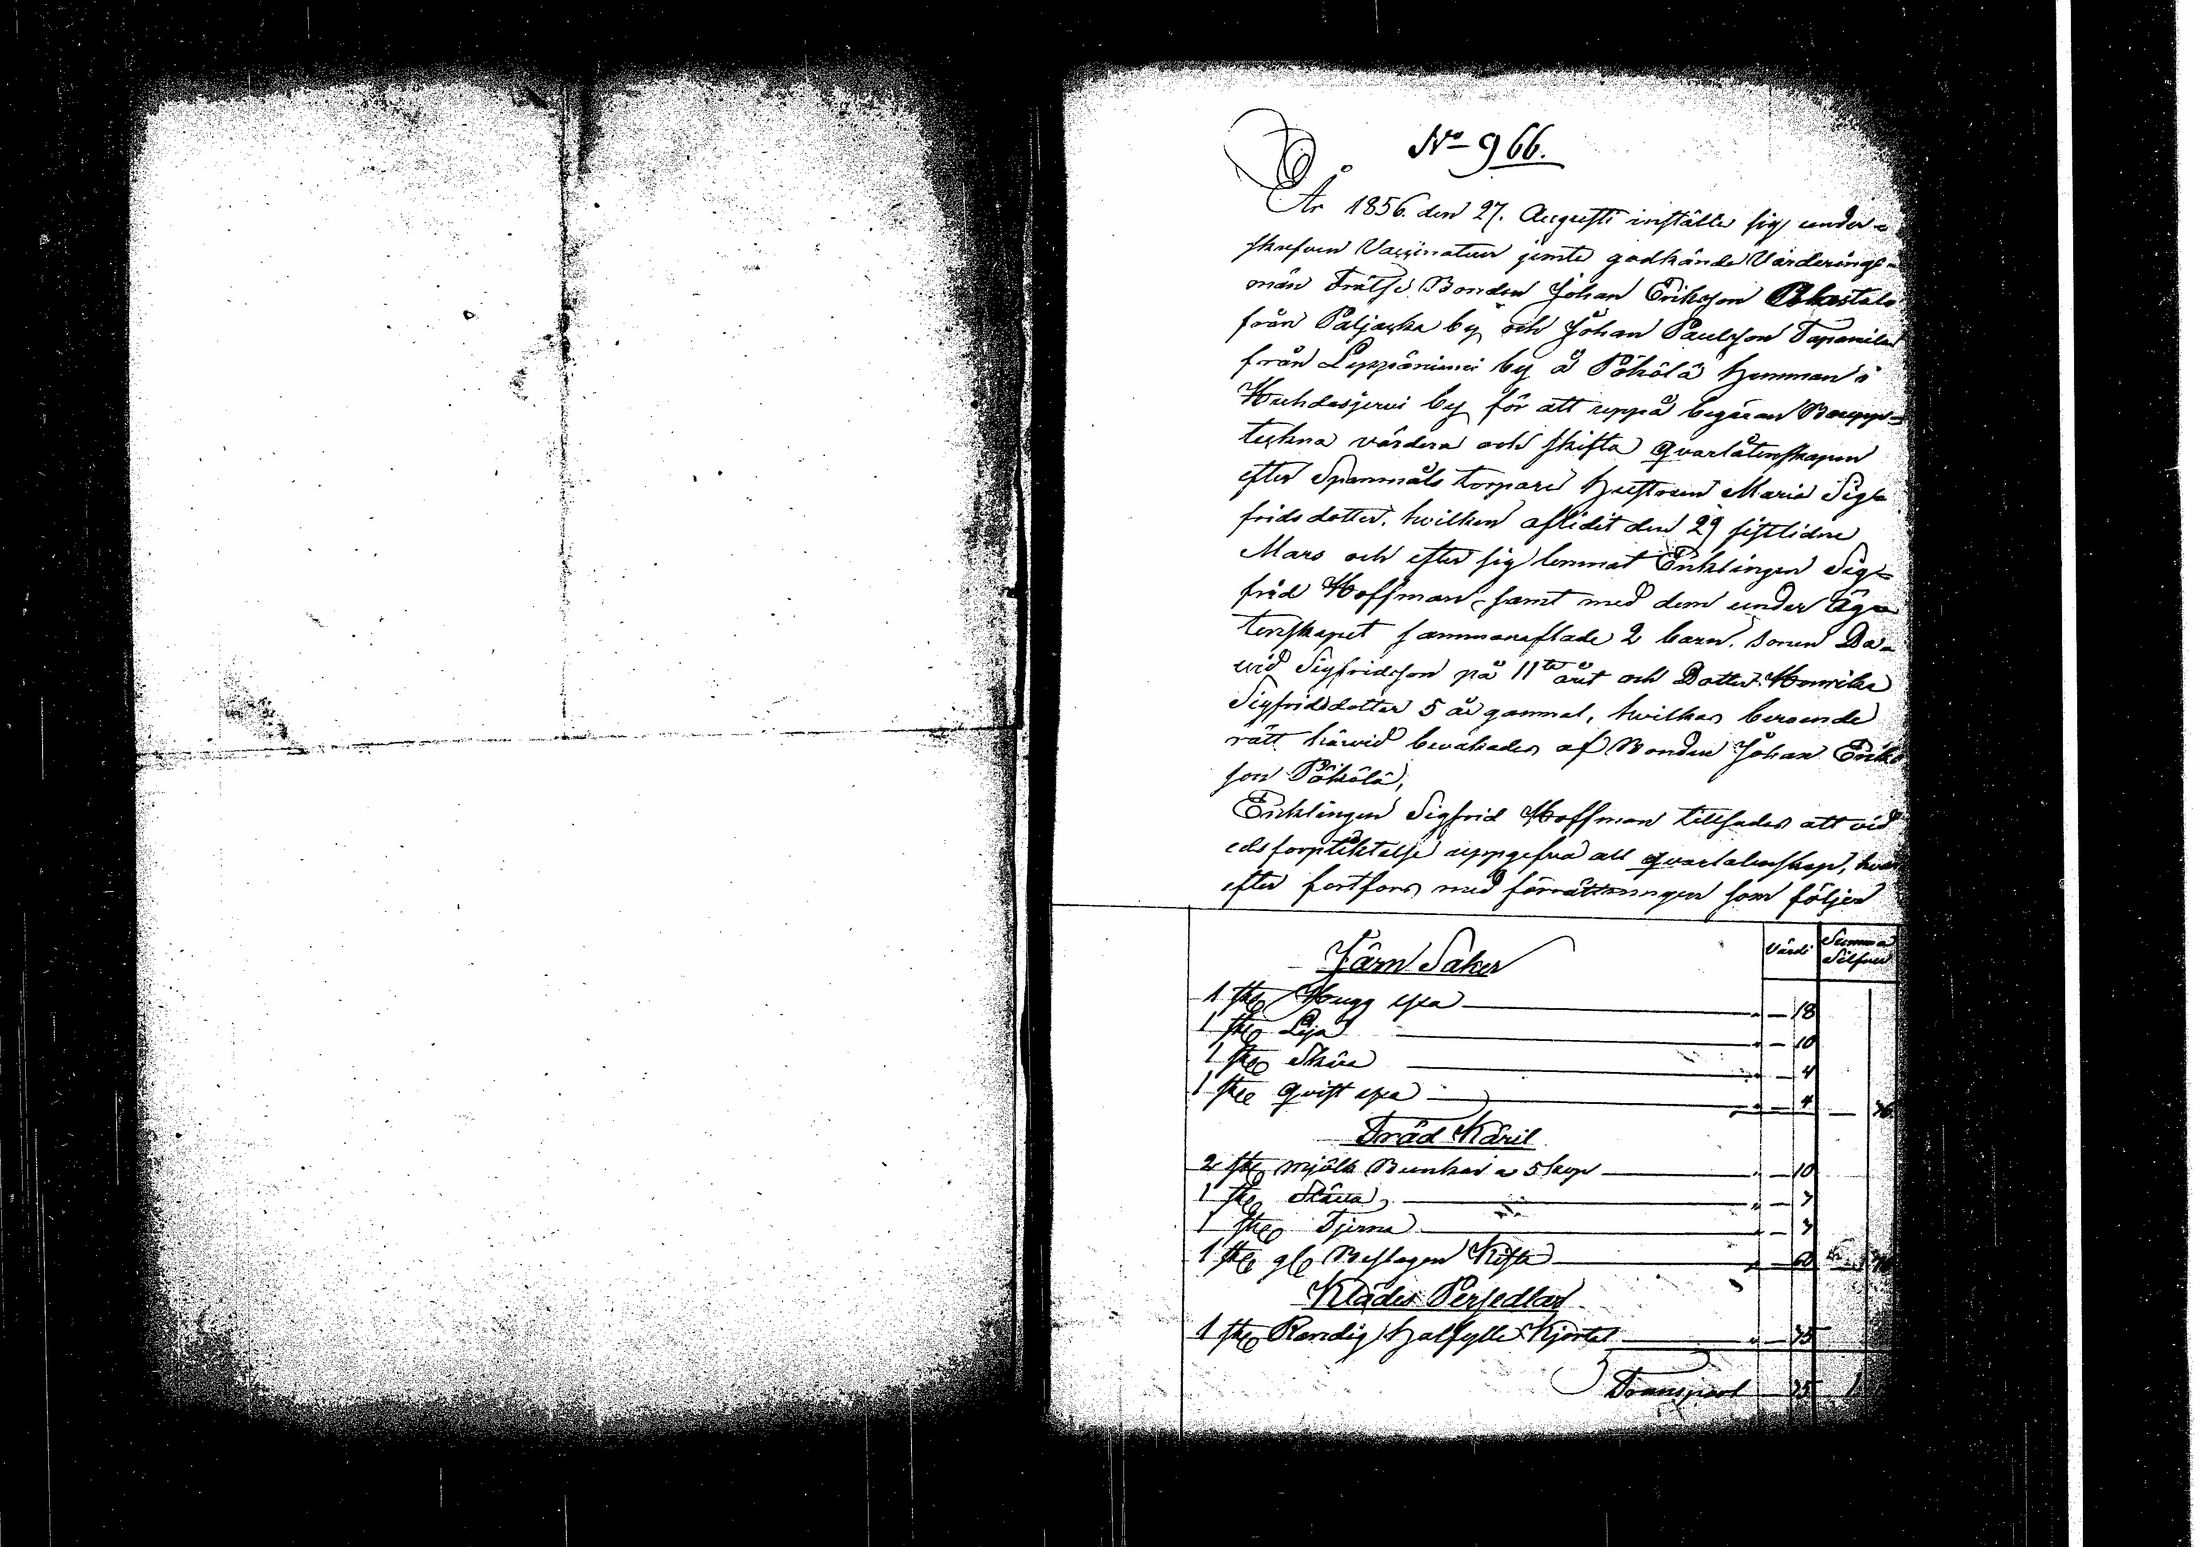 No 966.
År 1856. den 27. Augusti instälte sig under-
skrefven Vaccinateur jemte godkände Värderings-
män Frälse Bonden Johan Eriksson
från Paljacka by och Johan Paulsson Tapanila
från Leppäniemi by å Pöhölä hemman i
Kuhdasjervi by för att uppå begäran Boupp-
teckna värdera och skifta qvarlåtenskapen
efter Spanmåls torpare hustrun Maria Sig-
frids dotter, hvilken aflidit den 29 sistlidne
Mars och efter sig lemnat Enklingen Sig-
frid Hoffman, samt med dem under Äg-
tenskapet sammanaflade 2 barn. sonen Da-
vid Sigfridsson på 11te året och Dotter Henrika
Sigfridsdotter 5 år gammal, hvilkas beroende
rätt härvid bevakades af Bonden Johan Eriks
son Pöhölä,
Enklingen Sigfrid Hoffman tillsades att vid
eds förpliktelse uppgifva all qvarlatenskap, hvar
efter fortfors med förrättningen som följer
Värde Summa Silfver
Järn Saker
1 stk Hugg yxa " — 18
1 stk Lija " — 10
1 stk Skära " — 4
1 stk qvist yxa " — 4 — 36
Träd Käril
2 stk mjölk Bunkar a 5 kop " — 10
1 stk Stäva " — 7
1 stk Tjerna " — 7
1 stk gl Beslagen Kista " — 60
Klädes Persedlar
1 stk Randig halfylle Kjortel " — 75
Transport — 75 1